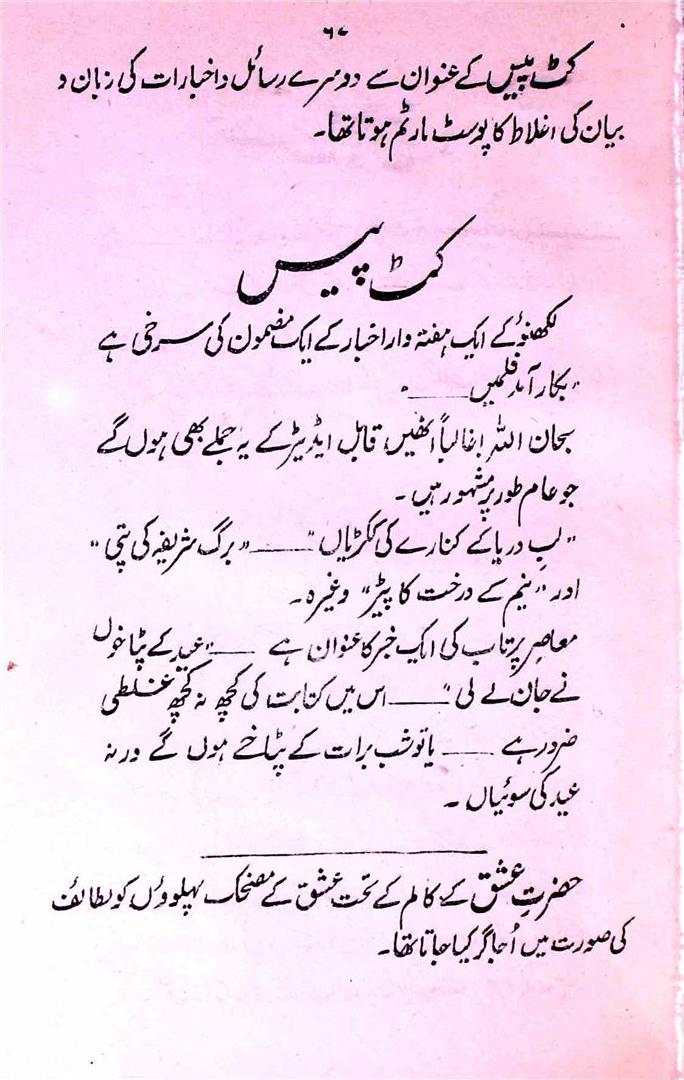 ۶۸
کٹ پیس کے عنوان سے دوسرے رسائل و اخبارات کی زبان و
بیان کی اغلاط کا پوسٹ مارٹم ہوتا تھا۔
کٹ پیس
لکھنؤ کے ایک ہفتہ وار اخبار کے ایک مضمون کی سرخی ہے
"بکار آمد فلمیں ــــــ"
سبحان اللہ! غالباً انھیں قابل ایڈیٹر کے یہ جملے بھی ہوں گے
جو عام طور پر مشہور ہیں۔
"لبِ دریا کے کنارے کی ککڑیاں" ــــــ "برگ شریفہ کی پتی"
اور "نیم کے درخت کا پیڑ" وغیرہ۔
معاصر پرتاب کی ایک خبر کا عنوان ہے ــــــ "عید کے پٹاخوں
نے جان لے لی" ــــــ اس میں کتابت کی کچھ نہ کچھ غلطی
ضرور ہے ــــــ یا تو شب برات کے پٹاخے ہوں گے ورنہ
عید کی سوئیاں۔
حضرتِ عشق کے کالم کے تحت عشق کے مضحک پہلوؤں کو لطائف
کی صورت میں اُجاگر کیا جاتا تھا۔